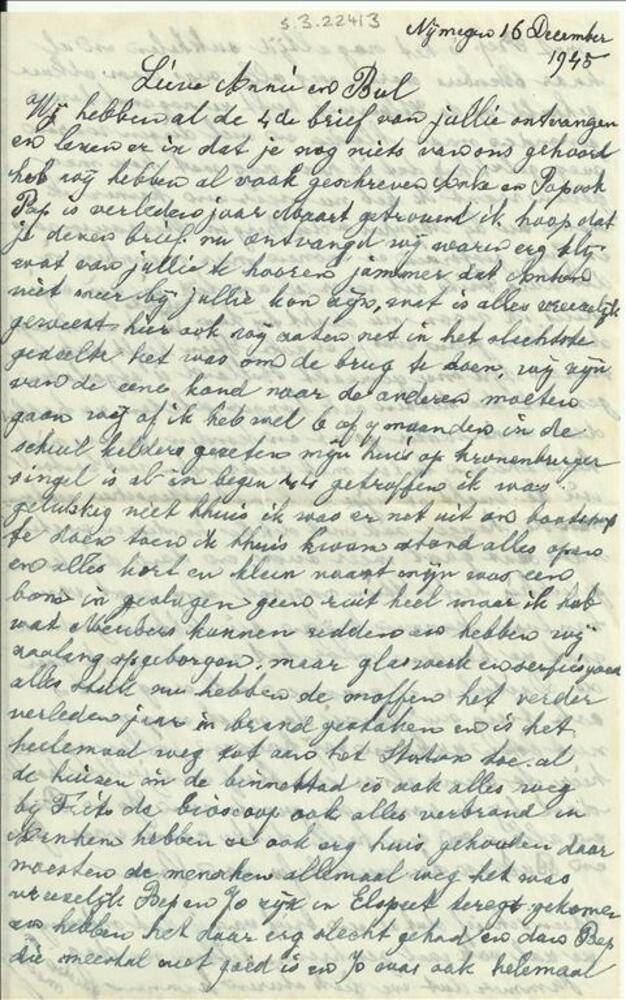 5.3.22413
Nijmegen 16 December
1945
Lieve Annie en Bul
Wij hebben al de 4 de brief van jullie ontvangen
en lezen er in dat je nog niets van ons gehoord
heb wij hebben al vaak geschreven Anke en Pap ook
Pap is verleden jaar Maart getrouwd ik hoop dat
je dezen brief nu ontvangd wij waren erg blij
wat van jullie te hooren jammer dat Anton
niet meer bij jullie kon zijn, wat is alles vreeselijk
geweest hier ook wij zaten net in het slechtste
gedeelte het was om de brug te doen, wij zijn
van de eene kand naar de anderen moeten
gaan wij of ik heb wel 6 of 7 maanden in de
schuil kelders gezeten mijn huis op kronenburger
singel is al in begin getroffen ik was
gelukkig niet thuis ik was er net uit om bootschap
te doen toen ik thuis kwam stond alles open
en alles kort en klein naast mijn was een
bom in geslagen geen ruit heel maar ik heb
wat Meubels kunnen redden en hebben wij
zoolang opgeborgen, maar glaswerk en serfiesgoed
alles stuk nu hebben de moffen het verder
verleden jaar in brand gestoken en is het
heelemaal weg tot aan het Station toe. al
de huizen in de binnestad is ook alles weg
bij Frits de bioscoop ook alles verbrand in
Arnhem hebben ze ook erg huis gehouden daar
moesten de menschen allemaal weg het was
vreeselijk Bep en Jo zijn in Elspeet teregt gekomen
en hebben het daar erg slecht gehad en dan Bep
die meestal niet goed is en Jo was ook helemaal